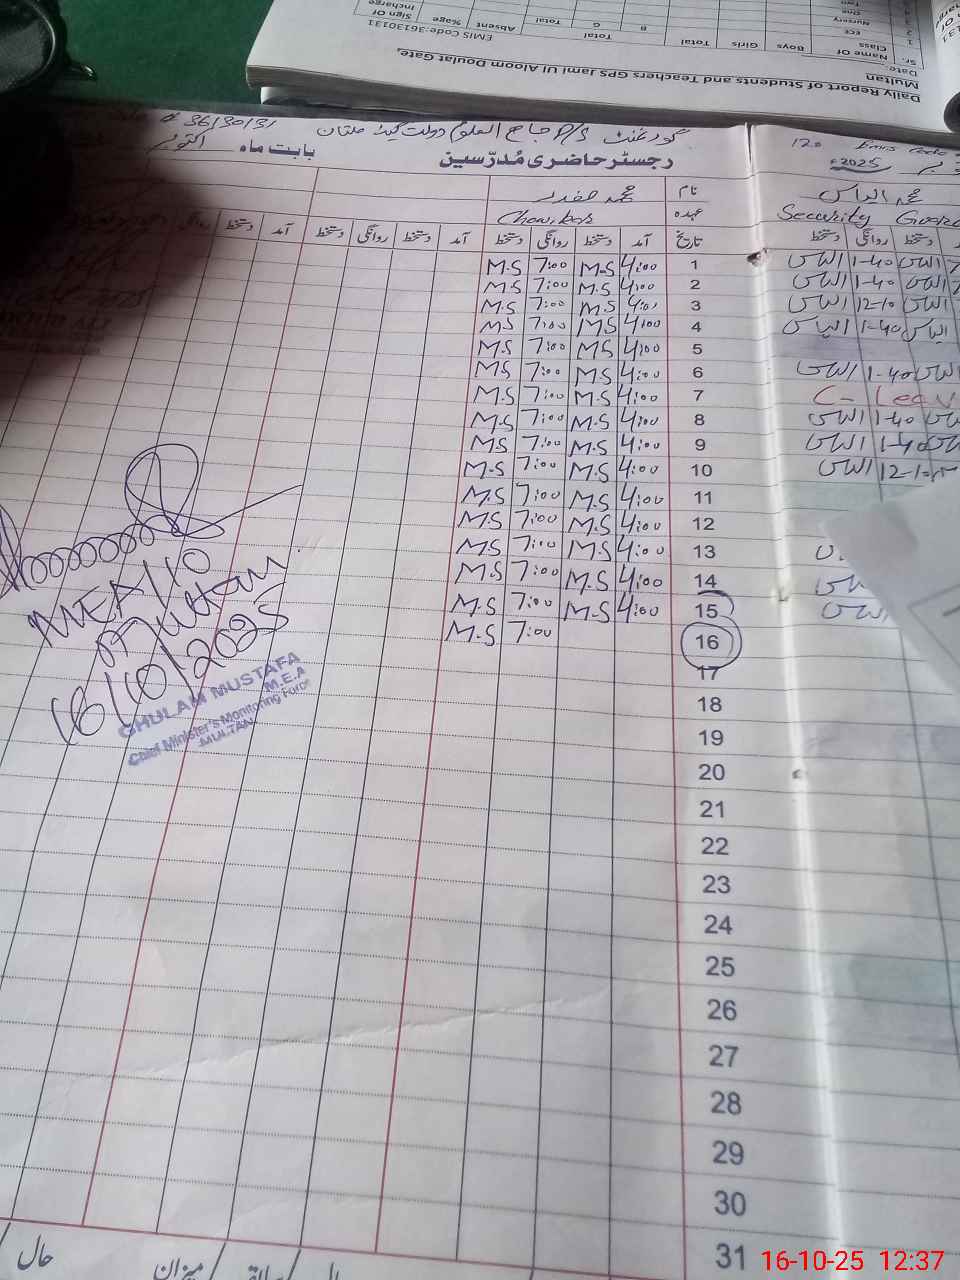 Daily Report of Students and Teachers GPS Jami Ul Aloom Doulat Gate,
Multan
Date:
EMIS Code-36130131
Sr. Name Of Class Boys Girls Total B G Total Absent %age Sign Of Incharge
1 ECE
2 Nursery
One
36130131
گورنمنٹ P/S جامع العلوم دولت گیٹ ملتان
رجسٹر حاضری مُدرّسین
بابت ماہ اکتوبر
نام محمد صفدر
عہدہ Chowkdar
تاریخ آمد دستخط روانگی دستخط آمد دستخط روانگی دستخط آمد دستخط
1 4:00 M.S 7:00 M.S
2 4:00 M.S 7:00 M.S
3 4:00 M.S 7:00 M.S
4 4:00 M.S 7:00 M.S
5 4:00 M.S 7:00 M.S
6 4:00 M.S 7:00 M.S
7 4:00 M.S 7:00 M.S
8 4:00 M.S 7:00 M.S
9 4:00 M.S 7:00 M.S
10 4:00 M.S 7:00 M.S
11 4:00 M.S 7:00 M.S
12 4:00 M.S 7:00 M.S
13 4:00 M.S 7:00 M.S
14 4:00 M.S 7:00 M.S
15 4:00 M.S 7:00 M.S
16 7:00 M.S
17
18
19
20
21
22
23
24
25
26
27
28
29
30
31
میزان
حال
2025ء
محمد الیاس
Security Guard
دستخط روانگی دستخط
الیاس 1-40 الیاس
الیاس 1-40 الیاس
الیاس 12-10 الیاس
الیاس 1-40 الیاس
الیاس 1-40 الیاس
C- Leav
الیاس 1-40
الیاس 1-40
الیاس 12-10
MEA/10
Multan
16/10/2025
GHULAM MUSTAFA
M.E.A
Chief Minister's Monitoring Force
MULTAN
16-10-25 12:37